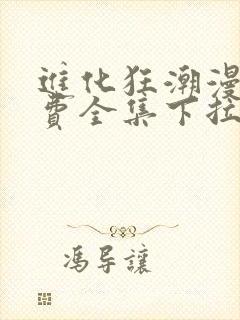 進化狂潮漫
費全集下拉
馮导讓